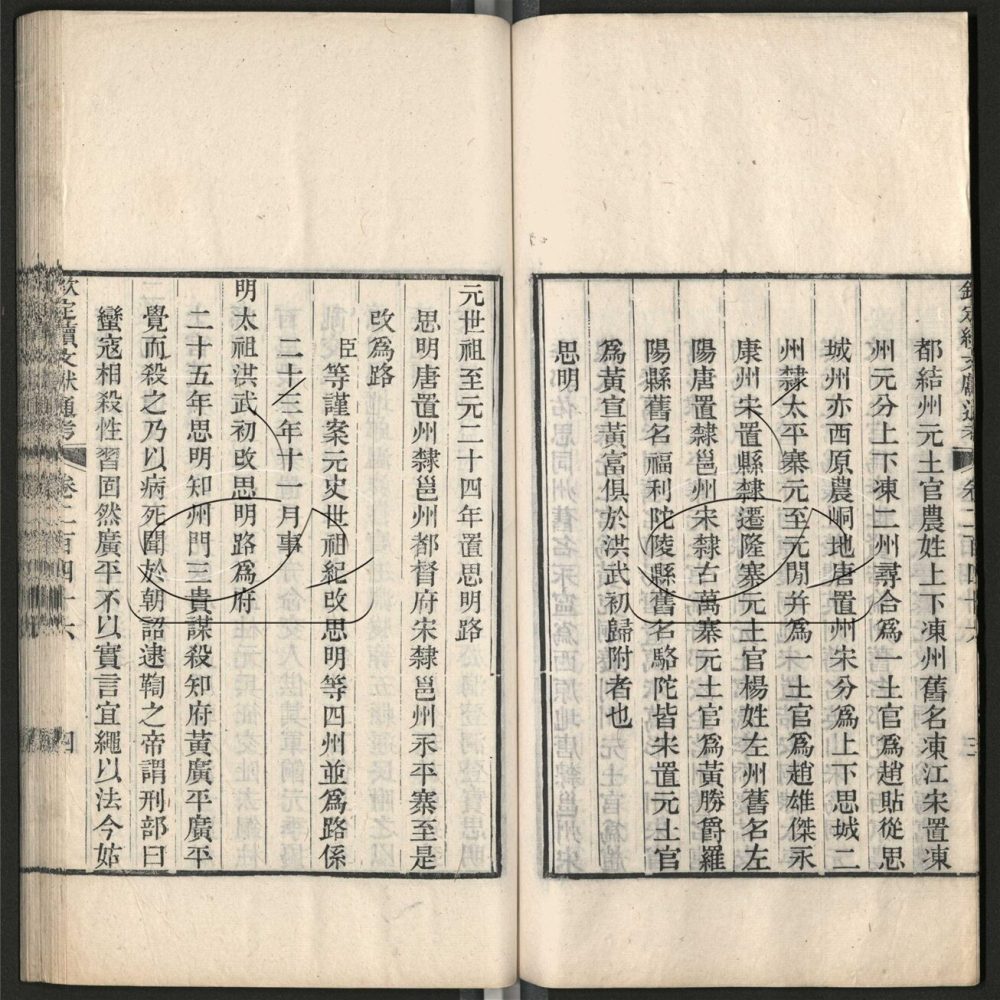 都結州元土官農姓上下凍州舊名凍江宋置凍
州元分上下凍二州尋合爲一土官爲趙貼從思
城州亦西原農峒地唐置州宋分爲上下思城二
州隸太平寨元至元閒并爲一土官爲趙雄傑永
康州宋置縣隸遷隆寨元土官楊姓左州舊名左
陽唐置隸邕州宋隸古萬寨元土官爲黃勝爵羅
陽縣舊名福利陀陵縣舊名駱陀皆宋置元土官
爲黃宣黃富俱於洪武初歸附者也
思明
元世祖至元二十四年置思明路
思明唐置州隸邕州都督府宋隸邕州永平寨至是
改爲路
臣等謹案元史世祖紀改思明等四州並爲路係
二十三年十一月事
明太祖洪武初改思明路爲府
二十五年思明知州門三貴謀殺知府黃廣平廣平
覺而殺之乃以病死聞於朝詔逮鞫之帝謂刑部曰
蠻寇相殺性習固然廣平不以實言宜繩以法今姑
欽定續文獻通考 卷二百四十六 四